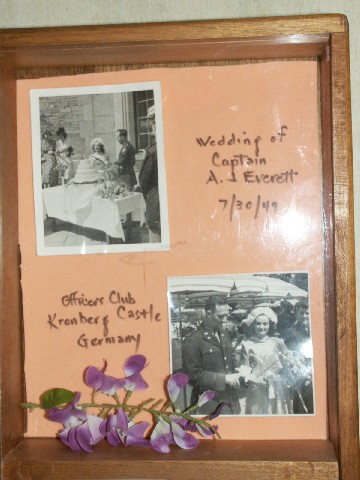 Wedding of
Captain
A. J Everett
7/30/49
Officers Club
Kronberg Castle
Germany